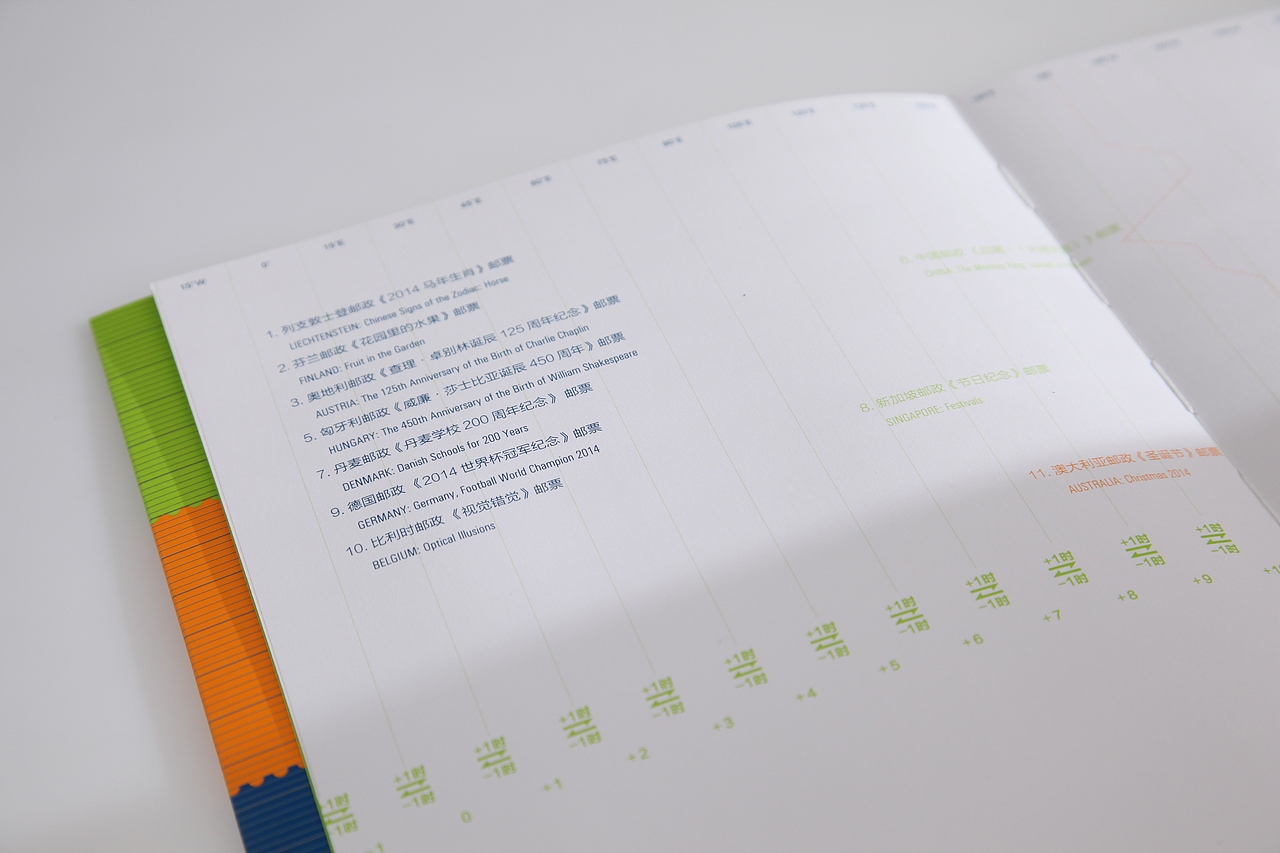 15°W 0° 15°E 30°E 45°E 60°E 75°E 90°E
1. 列支敦士登邮政《2014 马年生肖》邮票
LIECHTENSTEIN: Chinese Signs of the Zodiac: Horse
2. 芬兰邮政《花园里的水果》邮票
FINLAND: Fruit in the Garden
3. 奥地利邮政《查理·卓别林诞辰 125 周年纪念》邮票
AUSTRIA: The 125th Anniversary of the Birth of Charlie Chaplin
5. 匈牙利邮政《威廉·莎士比亚诞辰 450 周年》邮票
HUNGARY: The 450th Anniversary of the Birth of William Shakespeare
7. 丹麦邮政《丹麦学校 200 周年纪念》邮票
DENMARK: Danish Schools for 200 Years
9. 德国邮政《2014 世界杯冠军纪念》邮票
GERMANY: Germany, Football World Champion 2014
10. 比利时邮政《视觉错觉》邮票
BELGIUM: Optical Illusions
6. 中国邮政
CHINA: The Monkey King
8. 新加坡邮政《节日纪念》邮票
SINGAPORE: Festivals
11. 澳大利亚邮政《圣诞节》邮票
AUSTRALIA: Christmas 2014
+1时 +1时 +1时 +1时 +1时 +1时 +1时 +1时 +1时 +1时 +1时 +1时
-1时 -1时 -1时 -1时 -1时 -1时 -1时 -1时 -1时 -1时 -1时 -1时
0 +1 +2 +3 +4 +5 +6 +7 +8 +9